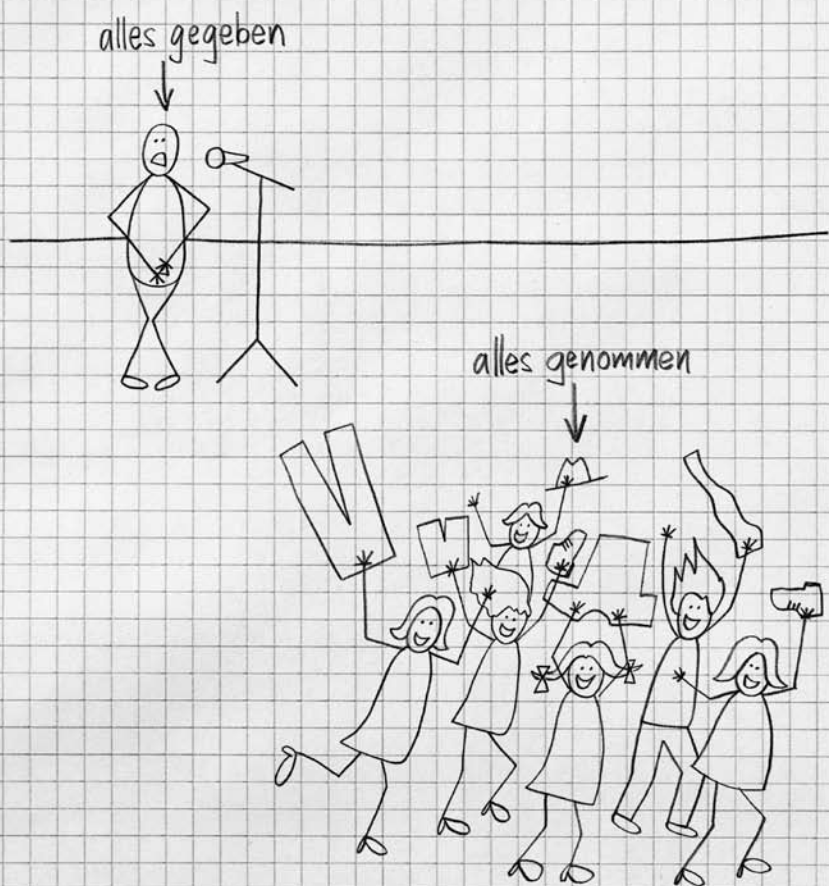 alles gegeben
alles genommen